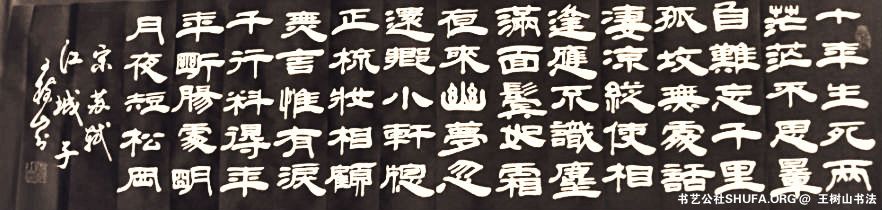 十年生死兩
茫茫不思量
自難忘千里
孤坟無處話
凄凉縱使相
逢應不識塵
滿面鬢如霜
夜來幽夢忽
還鄉小軒窗
正梳妝相顧
無言惟有淚
千行料得年
年斷腸處明
月夜短松岡
宋苏轼
江城子
书艺公社SHUFA.ORG@ 王树山书法